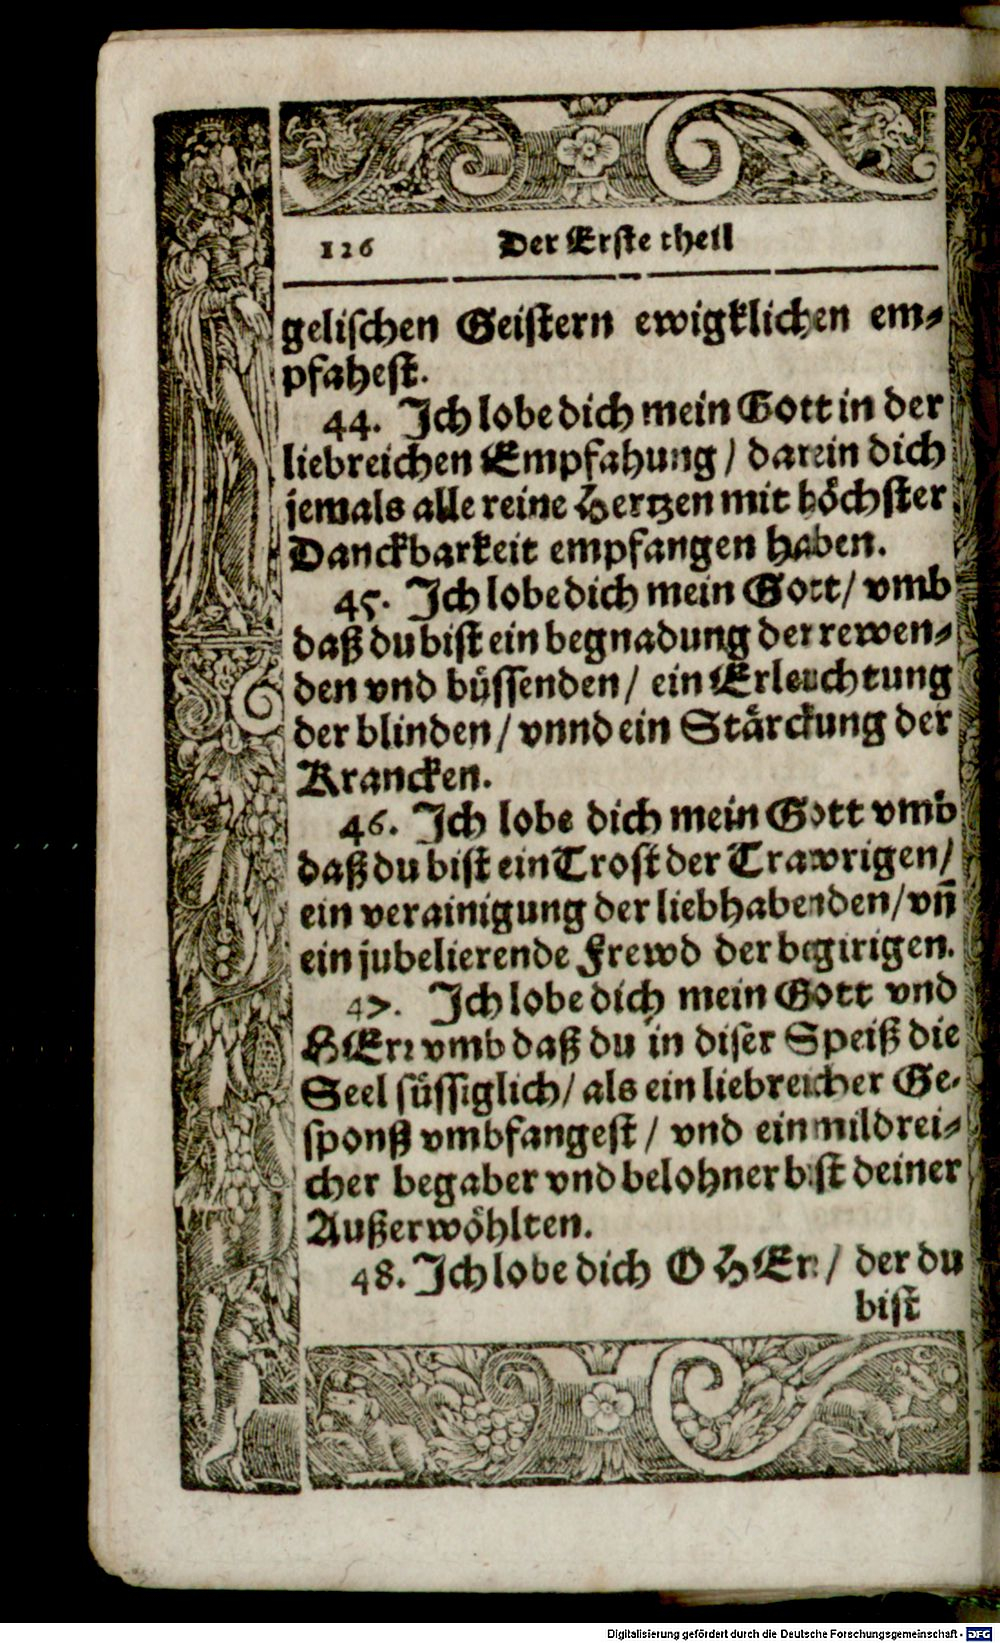 126 Der Erste theil
gelischen Geistern ewigklichen em-
pfahest.
44. Ich lobe dich mein Gott in der
liebreichen Empfahung / darein dich
jemals alle reine Hertzen mit höchster
Danckbarkeit empfangen haben.
45. Ich lobe dich mein Gott / vmb
daß du bist ein begnadung der rewen-
den vnd büssenden / ein Erleuchtung
der blinden / vnnd ein Stärckung der
Krancken.
46. Ich lobe dich mein Gott vmb
daß du bist ein Trost der Trawrigen /
ein verainigung der liebhabenden / vñ
ein jubelierende Frewd der begirigen.
47. Ich lobe dich mein Gott vnd
HErr vmb daß du in diser Speiß die
Seel süssiglich / als ein liebreicher Ge-
sponß vmbfangest / vnd ein mildrei-
cher begaber vnd belohner bist deiner
Außerwöhlten.
48. Ich lobe dich O HErr / der du
bist
Digitalisierung gefördert durch die Deutsche Forschungsgemeinschaft - DFG